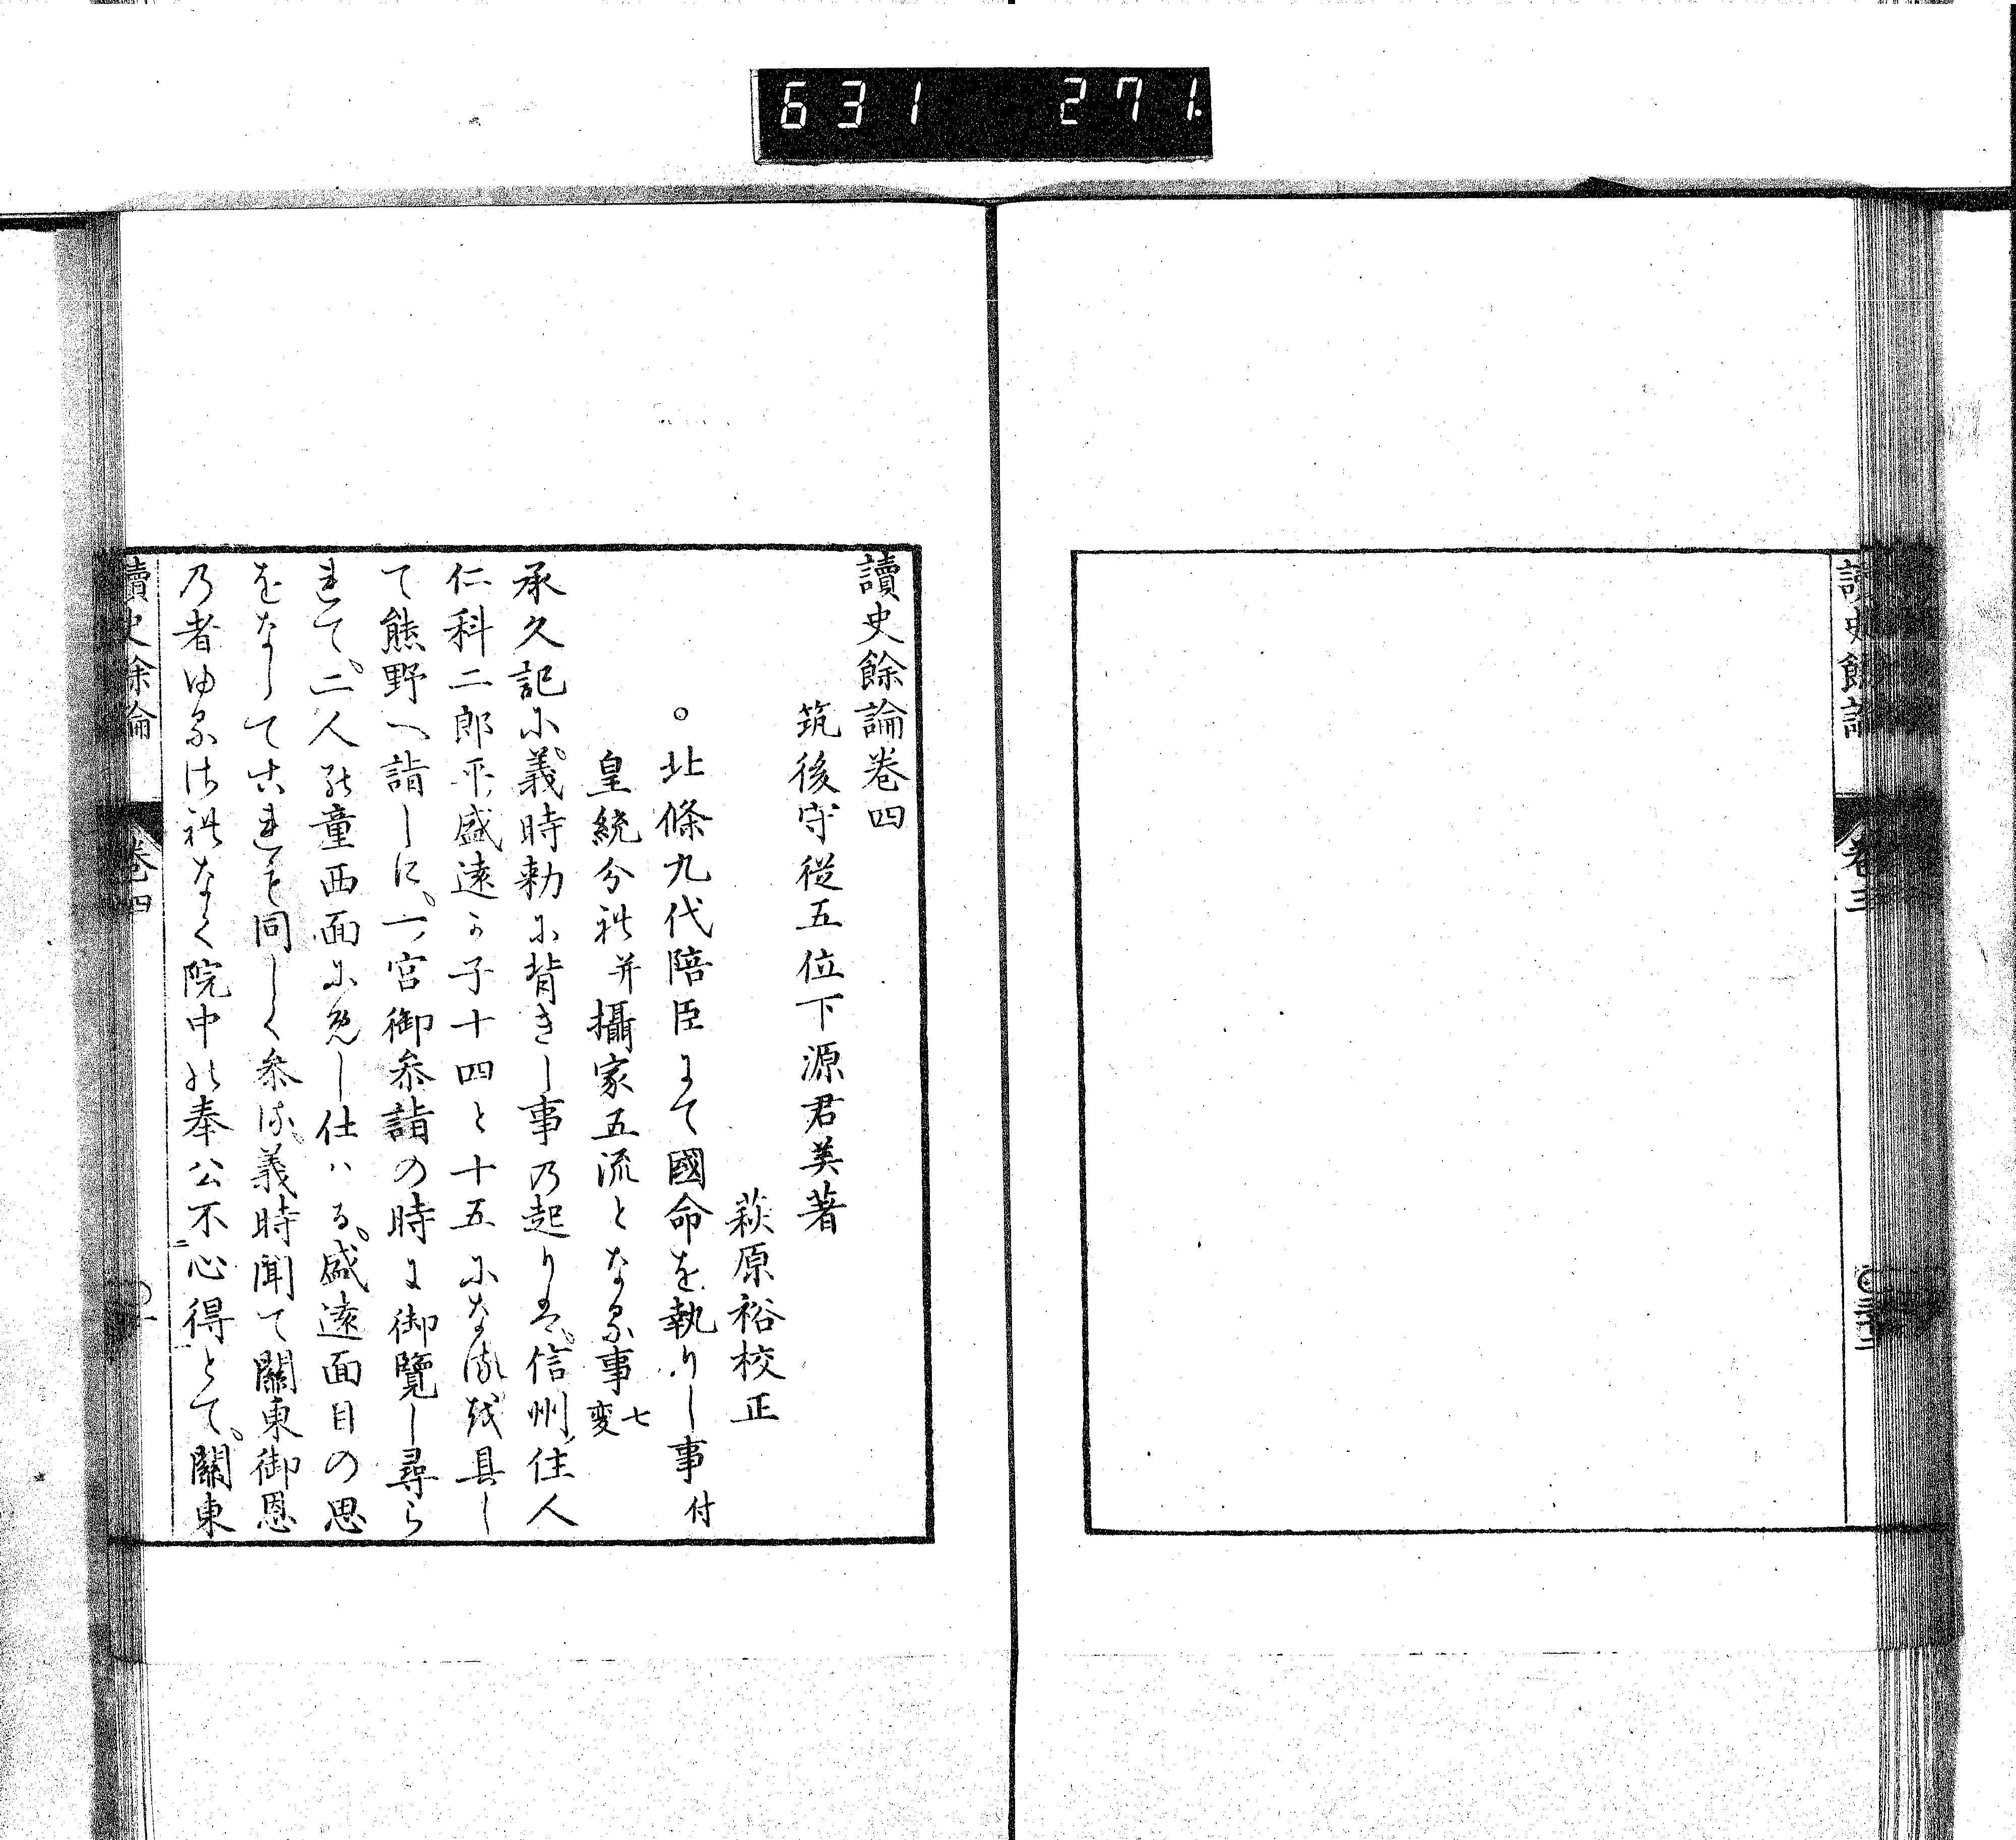 631 271.
讀史餘論
卷三
讀史餘論卷四
筑後守從五位下源君美著
萩原裕校正
。北條九代陪臣にて國命を執りし事付
皇統分れ并攝家五流となる事七変
承久記に。義時勅に背きし事乃起りは。信州住人
仁科二郎平盛遠か子十四と十五になるを具し
て熊野へ詣しに。一宮御参詣の時に御覽し尋ら
れて。二人の童西面にめし仕ハる。盛遠面目の思
をなして只これも同しく参る。義時聞て關東御恩
乃者ゆるされなく院中の奉公不心得とて。關東
讀史餘論
卷四